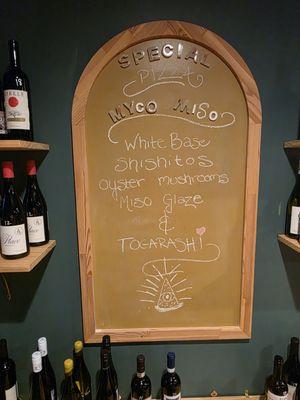 SPECIAL
PIZZA
MYCO MISO
White Base
shishitos
oyster mushrooms
Miso Glaze
&
TOGARASHI